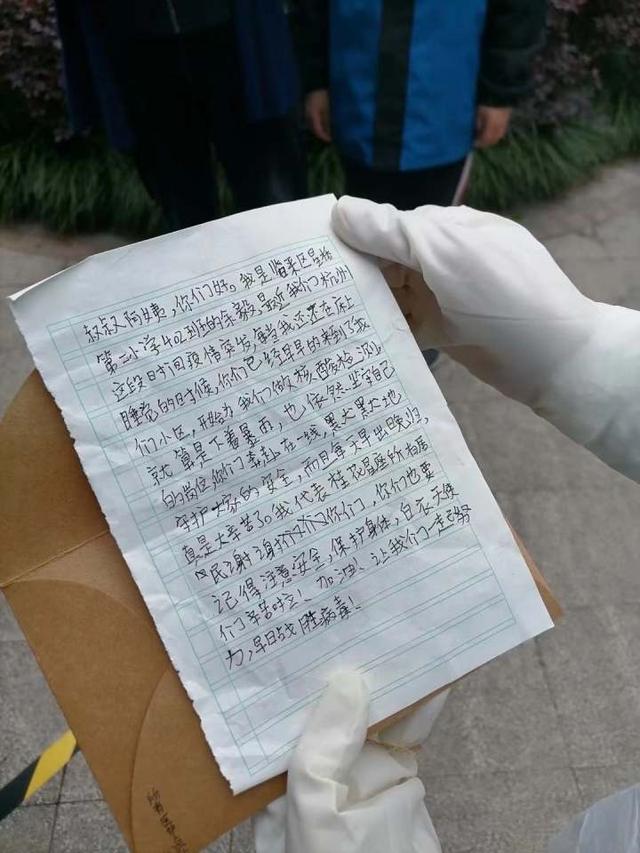 叔叔阿姨，你们好。我是临平区星桥
第二小学402班的余毅，最近我们杭州
这段时间疫情突发，每当我还在床上
睡觉的时候，你们已经早早的来到了我
们小区，开始为我们做核酸检测，
就算是下着暴雨，也依然坚守自己
的岗位，你们奔赴在一线，默默地
守护大家的安全，而且每天早出晚归，
真是太辛苦了。我代表桂花星座所有居
民谢谢你们，你们也要
记得注意安全，保护身体，白衣天使
们辛苦啦！加油！让我们一起努
力，早日战胜病毒！